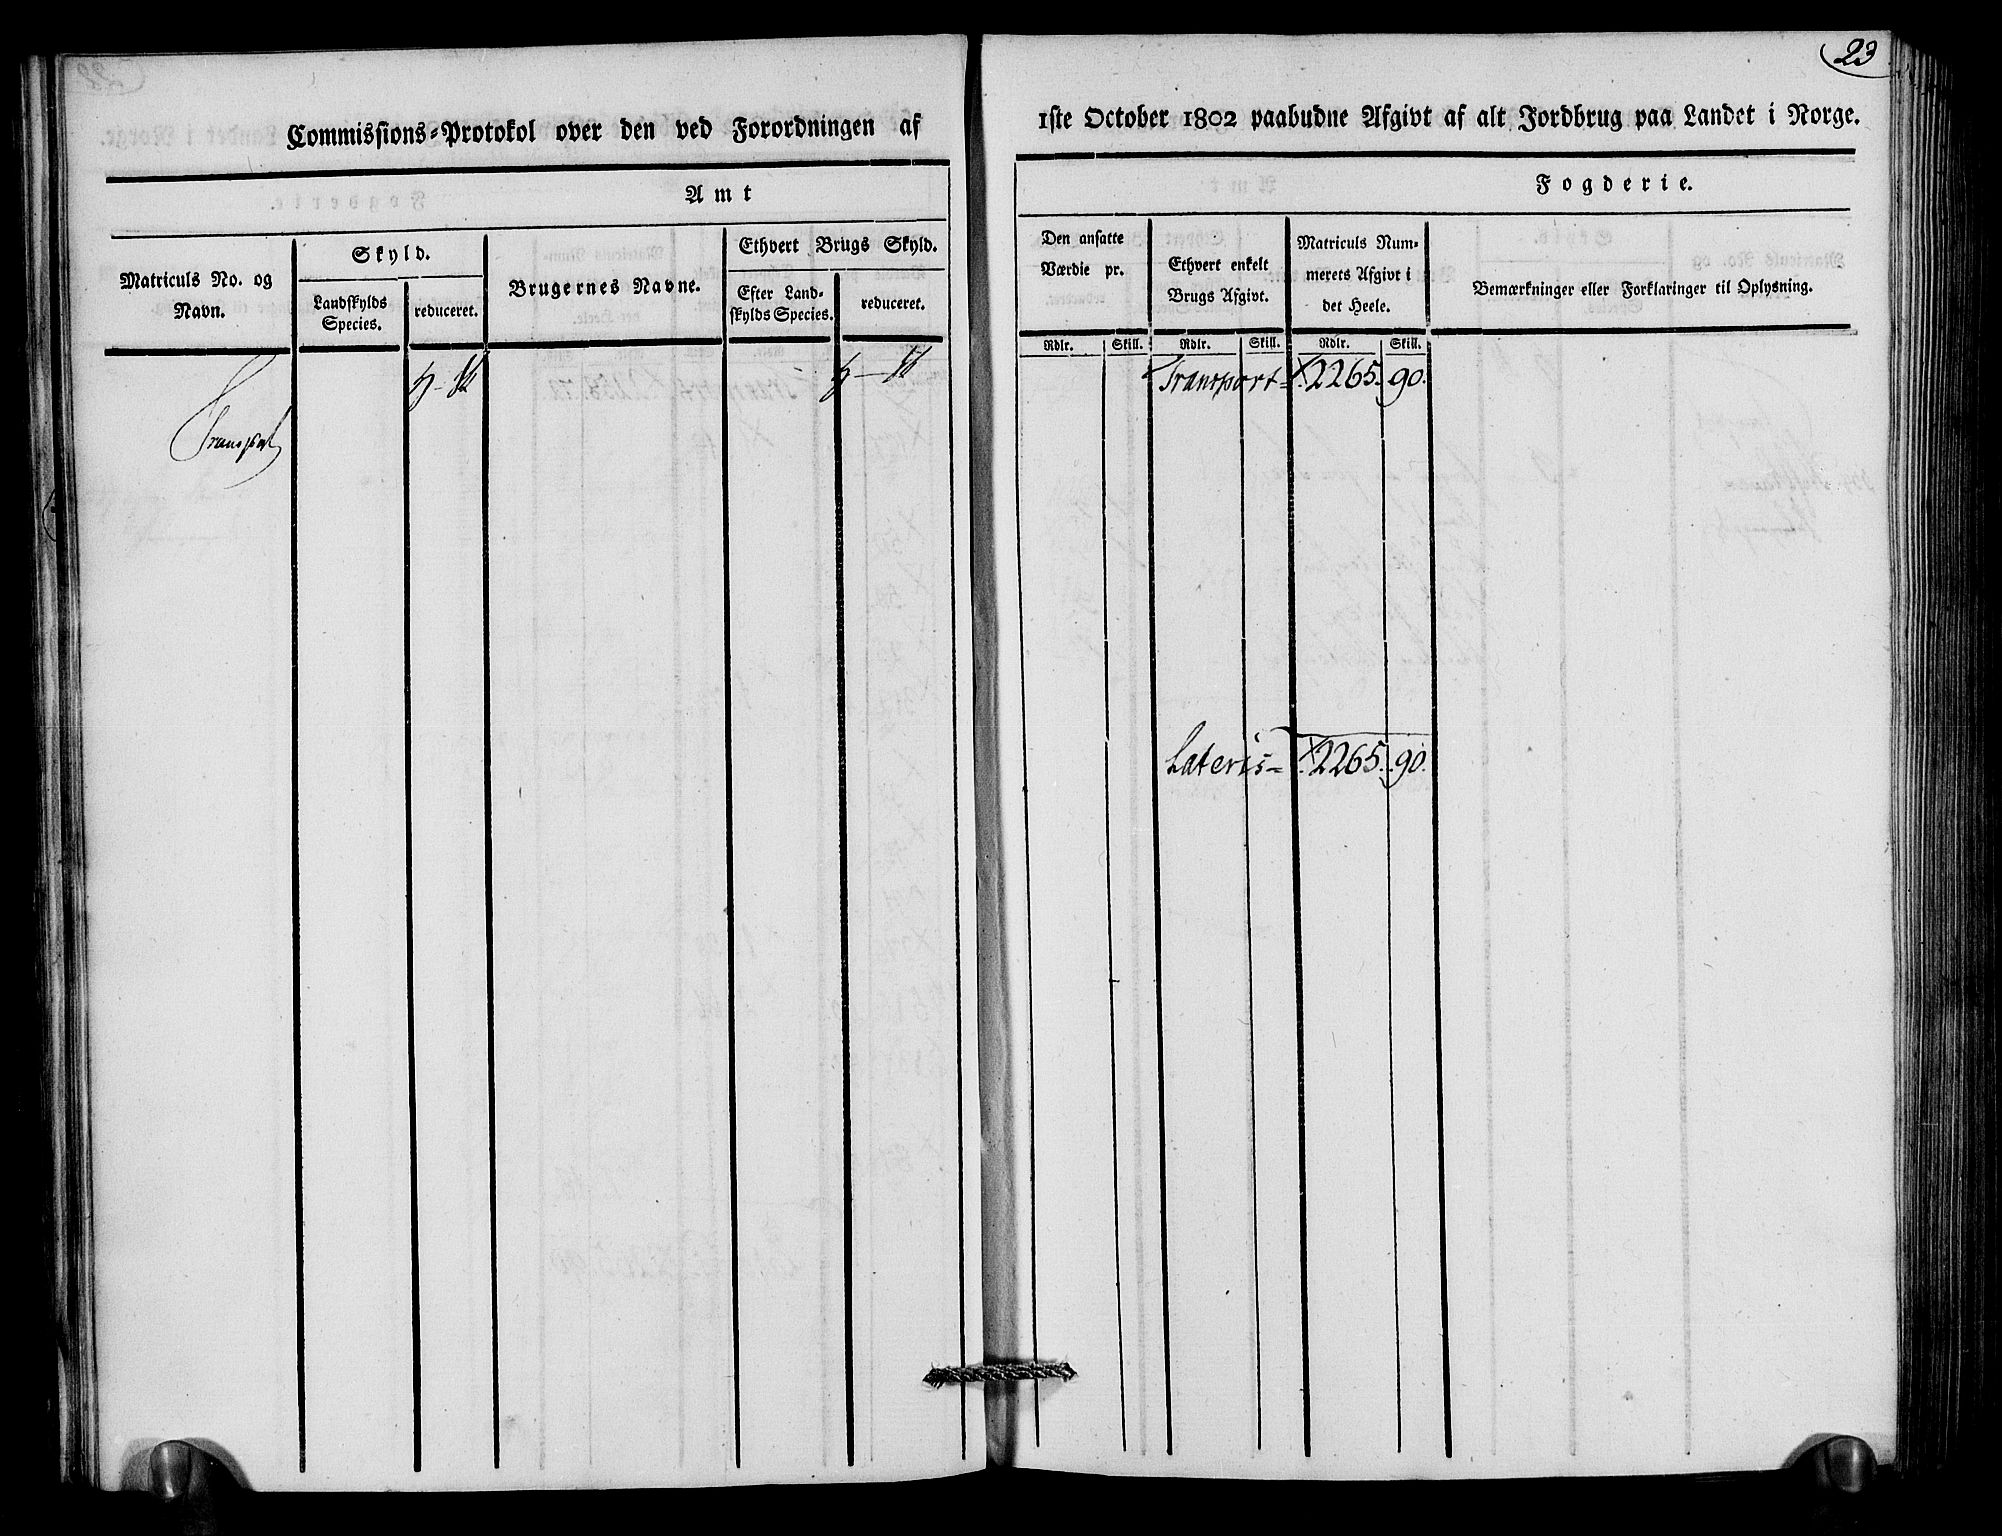 23
Commissions-Protokol over den ved Forordningen af
1ste October 1802 paabudne Afgivt af alt Jordbrug paa Landet i Norge.
Amt
Fogderie.
Matriculs No. og
Navn.
Skyld.
Landskylds
Species.
reduceret.
Brugernes Navne.
Ethvert Brugs Skyld.
Efter Land-
skylds Species.
reduceret.
Den ansatte
Værdie pr.
Ethvert enkelt
Brugs Afgivt.
Matriculs Num-
merets Afgivt i
det Heele.
Bemærkninger eller Forklaringer til Oplysning.
Rdlr. Skill. Rdlr. Skill. Rdlr. Skill.
Transport
Transport = 2265. 90.
Lateris = 2265. 90.